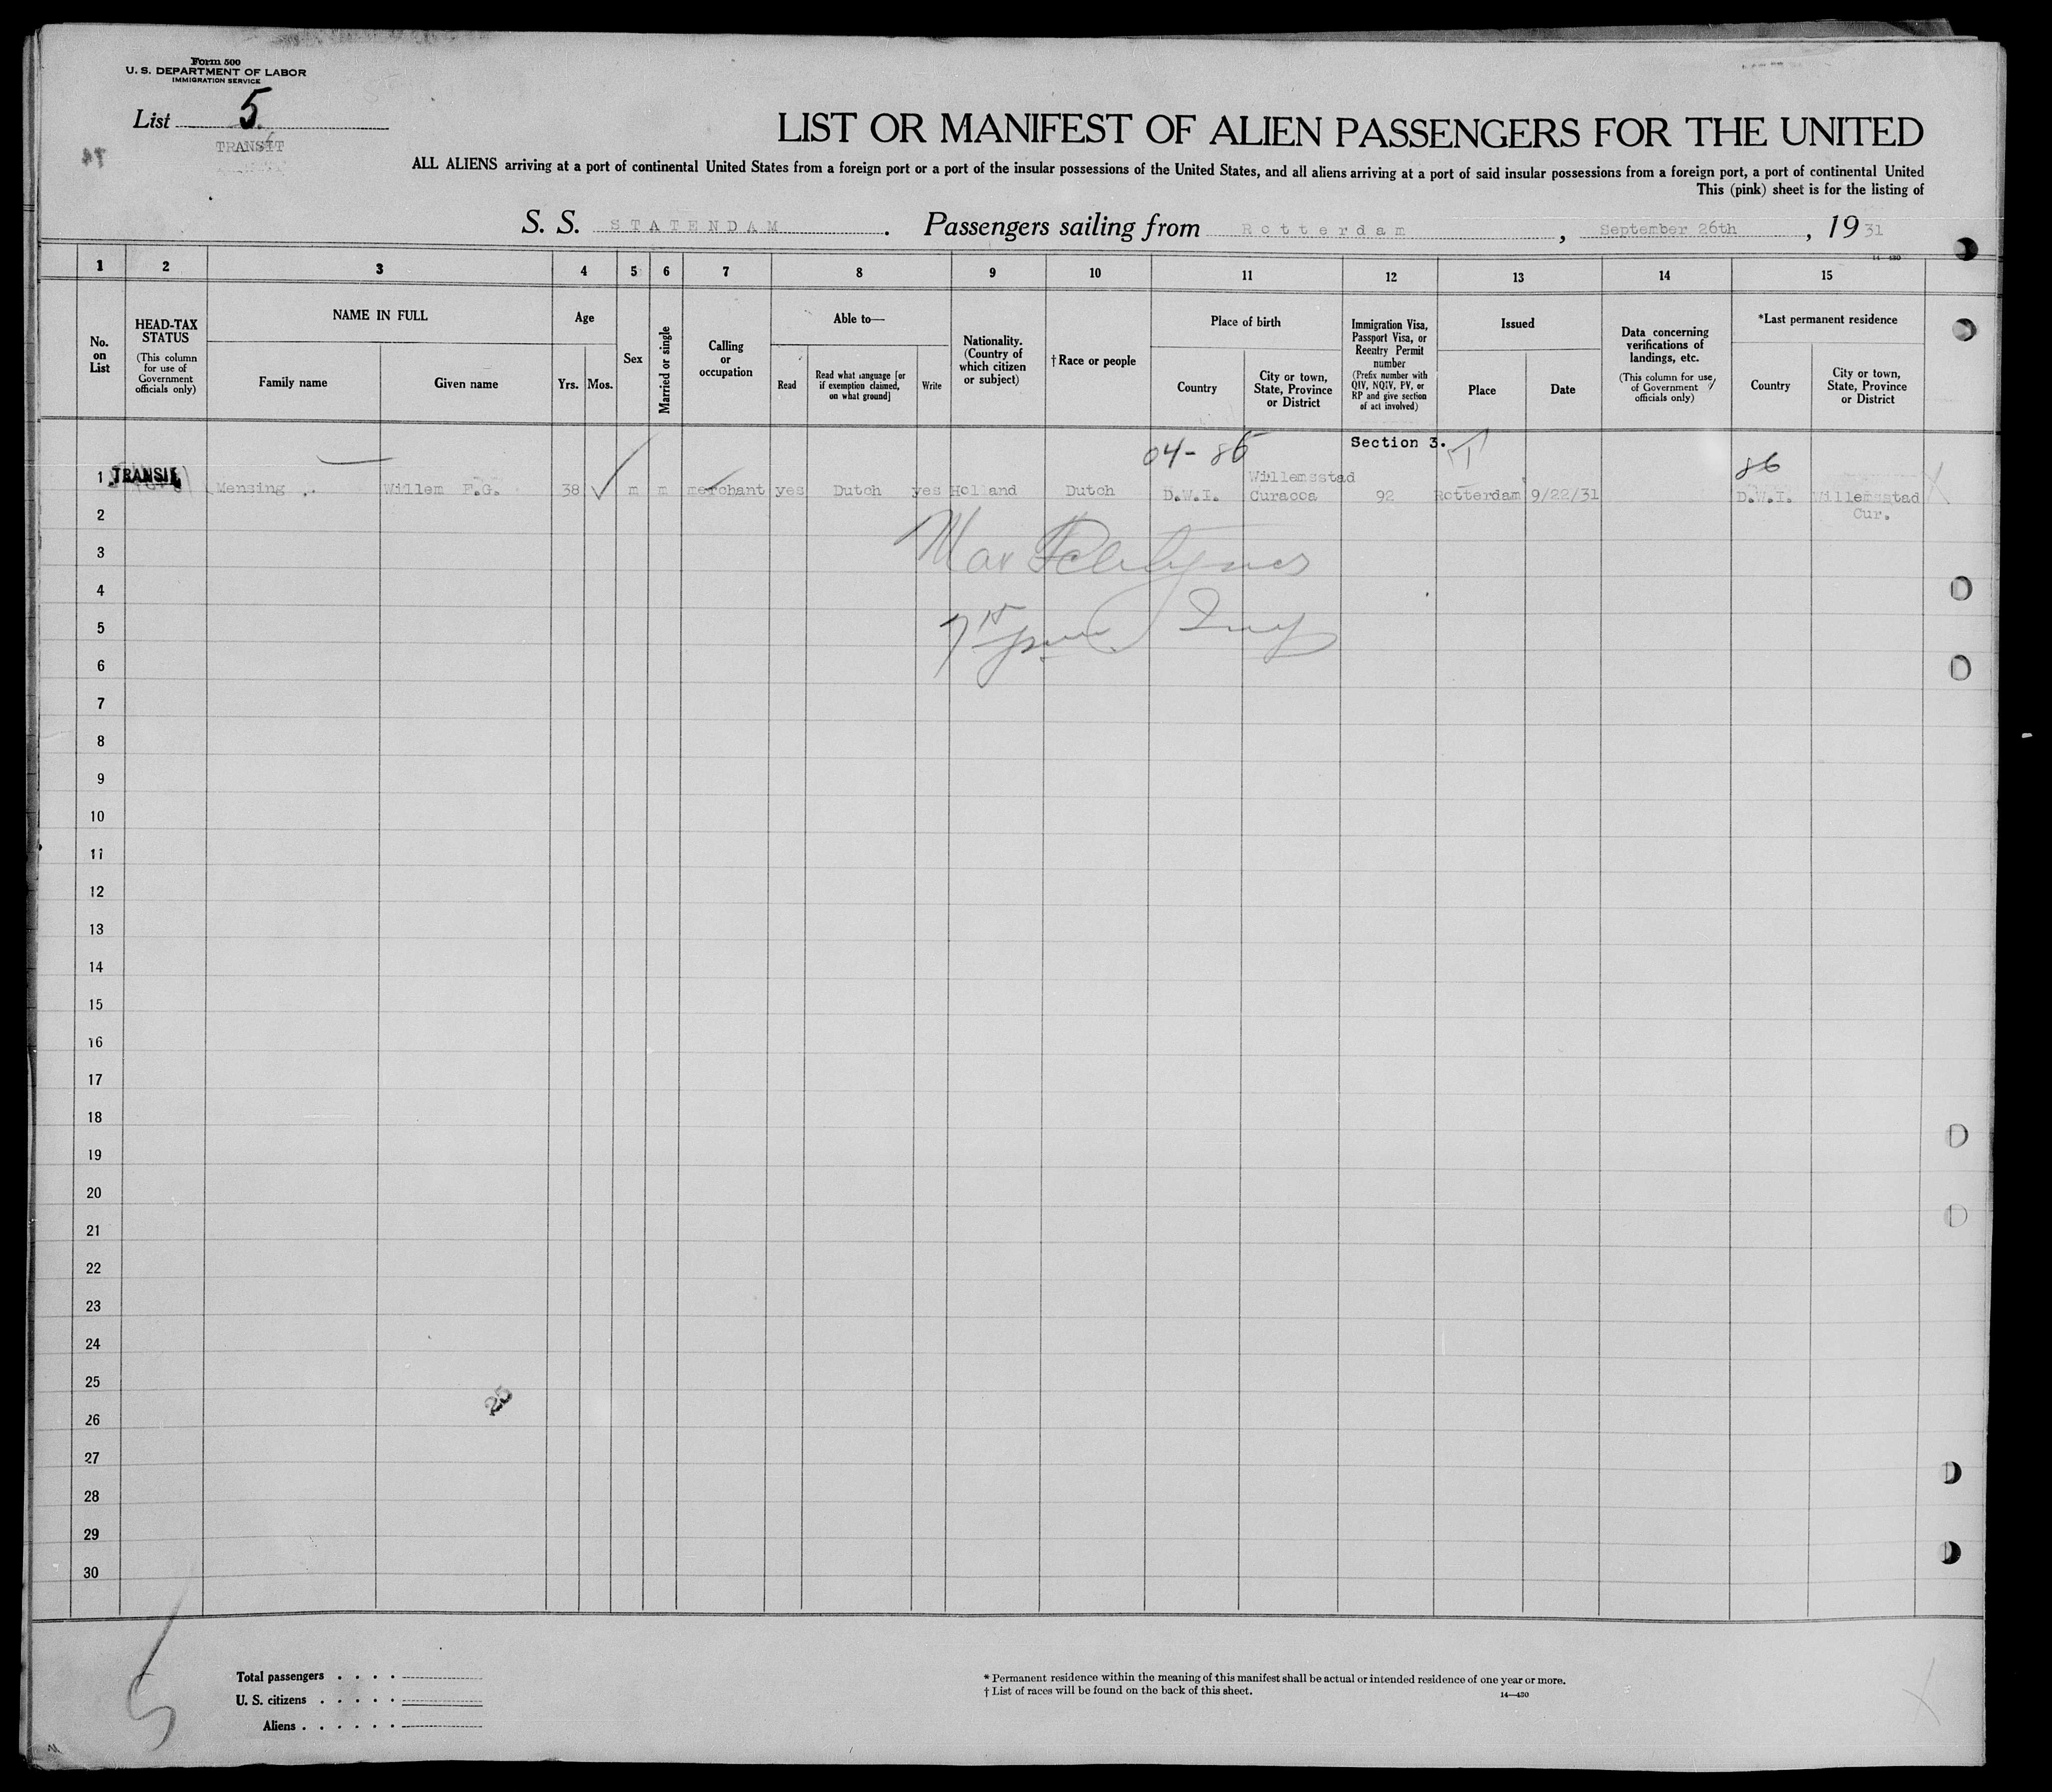 Form 500
U. S. DEPARTMENT OF LABOR
IMMIGRATION SERVICE
List 5
TRANSIT
LIST OR MANIFEST OF ALIEN PASSENGERS FOR THE UNITED
ALL ALIENS arriving at a port of continental United States from a foreign port or a port of the insular possessions of the United States, and all aliens arriving at a port of said insular possessions from a foreign port, a port of continental United
This (pink) sheet is for the listing of
S. S. STATENDAM. Passengers sailing from Rotterdam, September 26th, 1931
14—430
1 2 3 4 5 6 7 8 9 10 11 12 13 14 15
No. on List
HEAD-TAX STATUS
(This column for use of Government officials only)
NAME IN FULL
Family name
Given name
Age
Yrs. Mos.
Sex
Married or single
Calling or occupation
Able to—
Read
Read what language [or if exemption claimed, on what ground]
Write
Nationality. (Country of which citizen or subject)
†Race or people
Place of birth
Country
City or town, State, Province or District
Immigration Visa, Passport Visa, or Reentry Permit number
(Prefix number with QIV, NQIV, PV, or RP and give section of act involved)
Issued
Place
Date
Data concerning verifications of landings, etc.
(This column for use of Government officials only)
*Last permanent residence
Country
City or town, State, Province or District
04-86 Section 3. 86
1 TRANSIT Mensing Willem F.G. 38 m m merchant yes Dutch yes Holland Dutch D.W.I. Willemsstad Curacoa 92 Rotterdam 9/22/31 D.W.I. Willemsstad Cur.
2
3
4
5
6
7
8
9
10
11
12
13
14
15
16
17
18
19
20
21
22
23
24
25
26
27
28
29
30
25
5
Total passengers . . . .
U. S. citizens . . . . .
Aliens . . . . . .
* Permanent residence within the meaning of this manifest shall be actual or intended residence of one year or more.
† List of races will be found on the back of this sheet.
14—430